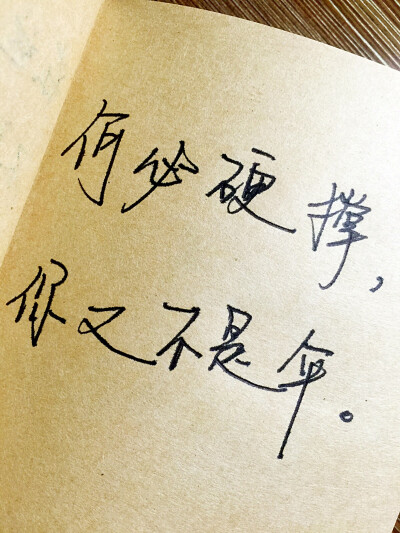 何必硬撑，
你又不是伞。